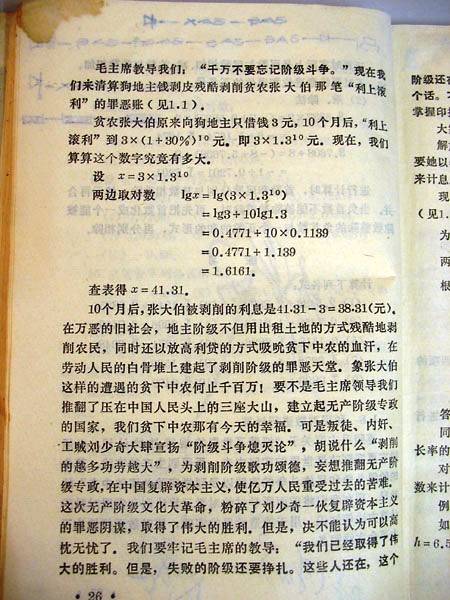 毛主席教导我们：“千万不要忘记阶级斗争。”现在我
们来清算狗地主钱剥皮残酷剥削贫农张大伯那笔“利上滚
利”的罪恶账（见1.1）。
贫农张大伯原来向狗地主只借钱3元，10个月后，“利上
滚利”到3×(1+30%)¹⁰元。即3×1.3¹⁰元。现在，我们
算算这个数字究竟有多大。
设 x=3×1.3¹⁰）
两边取对数 lgx=lg(3×1.3¹⁰)
=lg3+10lg1.3
=0.4771+10×0.1139
=0.4771+1.139
=1.6161.
查表得x=41.31.
10个月后，张大伯被剥削的利息是41.31－3=38.31(元)。
在万恶的旧社会，地主阶级不但用出租土地的方式残酷地剥
削农民，同时还以放高利贷的方式吸吮贫下中农的血汗，在
劳动人民的白骨堆上建起了剥削阶级的罪恶天堂。象张大伯
这样的遭遇的贫下中农何止千百万！要不是毛主席领导我们
推翻了压在中国人民头上的三座大山，建立起无产阶级专政
的国家，我们贫下中农那有今天的幸福。可是叛徒、内奸、
工贼刘少奇大肆宣扬“阶级斗争熄灭论”，胡说什么“剥削
的越多功劳越大”，为剥削阶级歌功颂德，妄想推翻无产阶
级专政，在中国复辟资本主义，使亿万人民重受过去的苦难。
这次无产阶级文化大革命，粉碎了刘少奇一伙复辟资本主义
的罪恶阴谋，取得了伟大的胜利。但是，决不能认为可以高
枕无忧了。我们要牢记毛主席的教导：“我们已经取得了伟
大的胜利。但是，失败的阶级还要挣扎。这些人还在，这个
·26·
阶级还在
个话。
掌握印把
大
解
要她以
来计息
现
（见1.
为
两
根
答
同
长率的
对
数来计
例
如
h=6.5